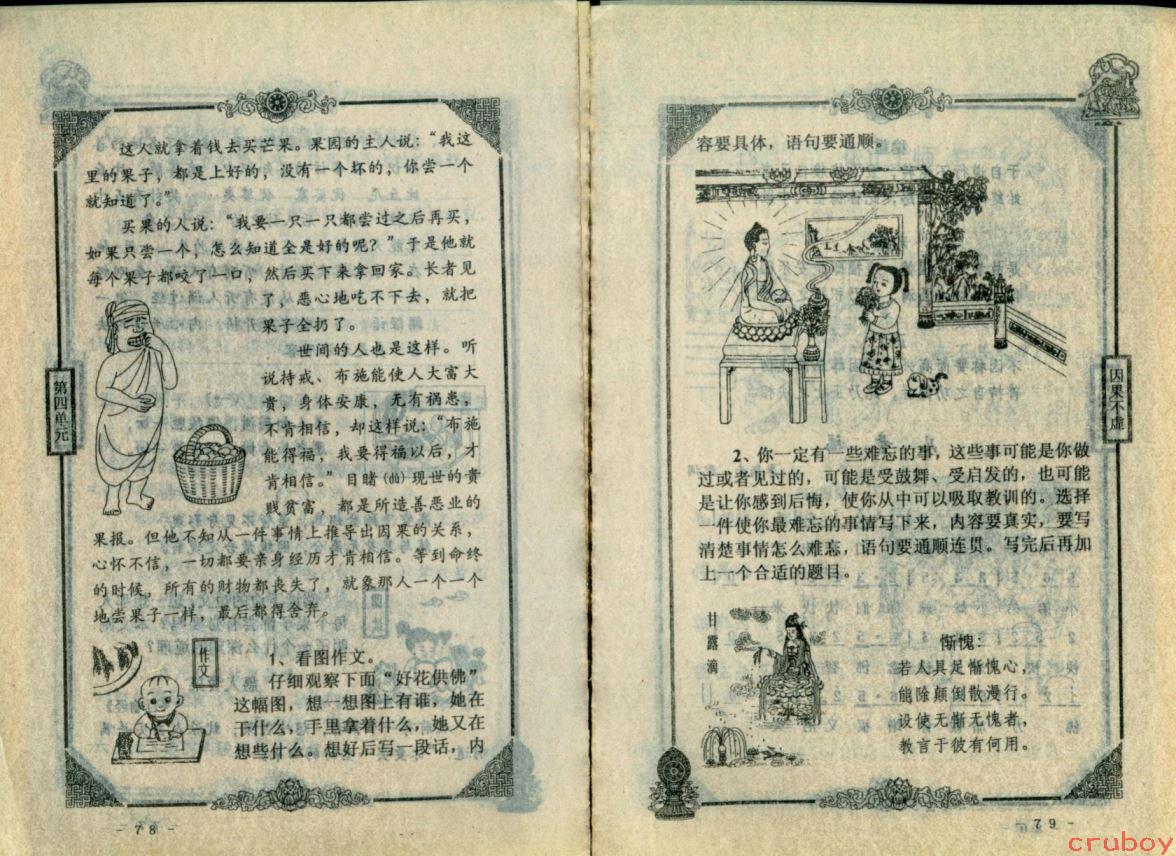 这人就拿着钱去买芒果。果园的主人说：“我这
里的果子，都是上好的，没有一个坏的，你尝一个
就知道了。”
买果的人说：“我要一只一只都尝过之后再买，
如果只尝一个，怎么知道全是好的呢？”于是他就
每个果子都咬了一口，然后买下来拿回家。长者见
了，恶心地吃不下去，就把
果子全扔了。
世间的人也是这样。听
说持戒、布施能使人大富大
贵，身体安康，无有祸患，
不肯相信，却这样说：“布施
能得福，我要得福以后，才
肯相信。”目睹(dǔ)现世的贵
贱贫富，都是所造善恶业的
果报。但他不知从一件事情上推导出因果的关系，
心怀不信，一切都要亲身经历才肯相信。等到命终
的时候，所有的财物都丧失了，就象那人一个一个
地尝果子一样，最后都得舍弃。
第四单元
作文
1、看图作文。
仔细观察下面“好花供佛”
这幅图，想一想图上有谁，她在
干什么，手里拿着什么，她又在
想些什么。想好后写一段话，内
- 78 -
容要具体，语句要通顺。
因果不虚
2、你一定有一些难忘的事，这些事可能是你做
过或者见过的，可能是受鼓舞、受启发的，也可能
是让你感到后悔，使你从中可以吸取教训的。选择
一件使你最难忘的事情写下来，内容要真实，要写
清楚事情怎么难忘，语句要通顺连贯。写完后再加
上一个合适的题目。
甘露滴
惭愧：
若人具足惭愧心，
能除颠倒散漫行。
设使无惭无愧者，
教言于彼有何用。
- 79 -
cruboy